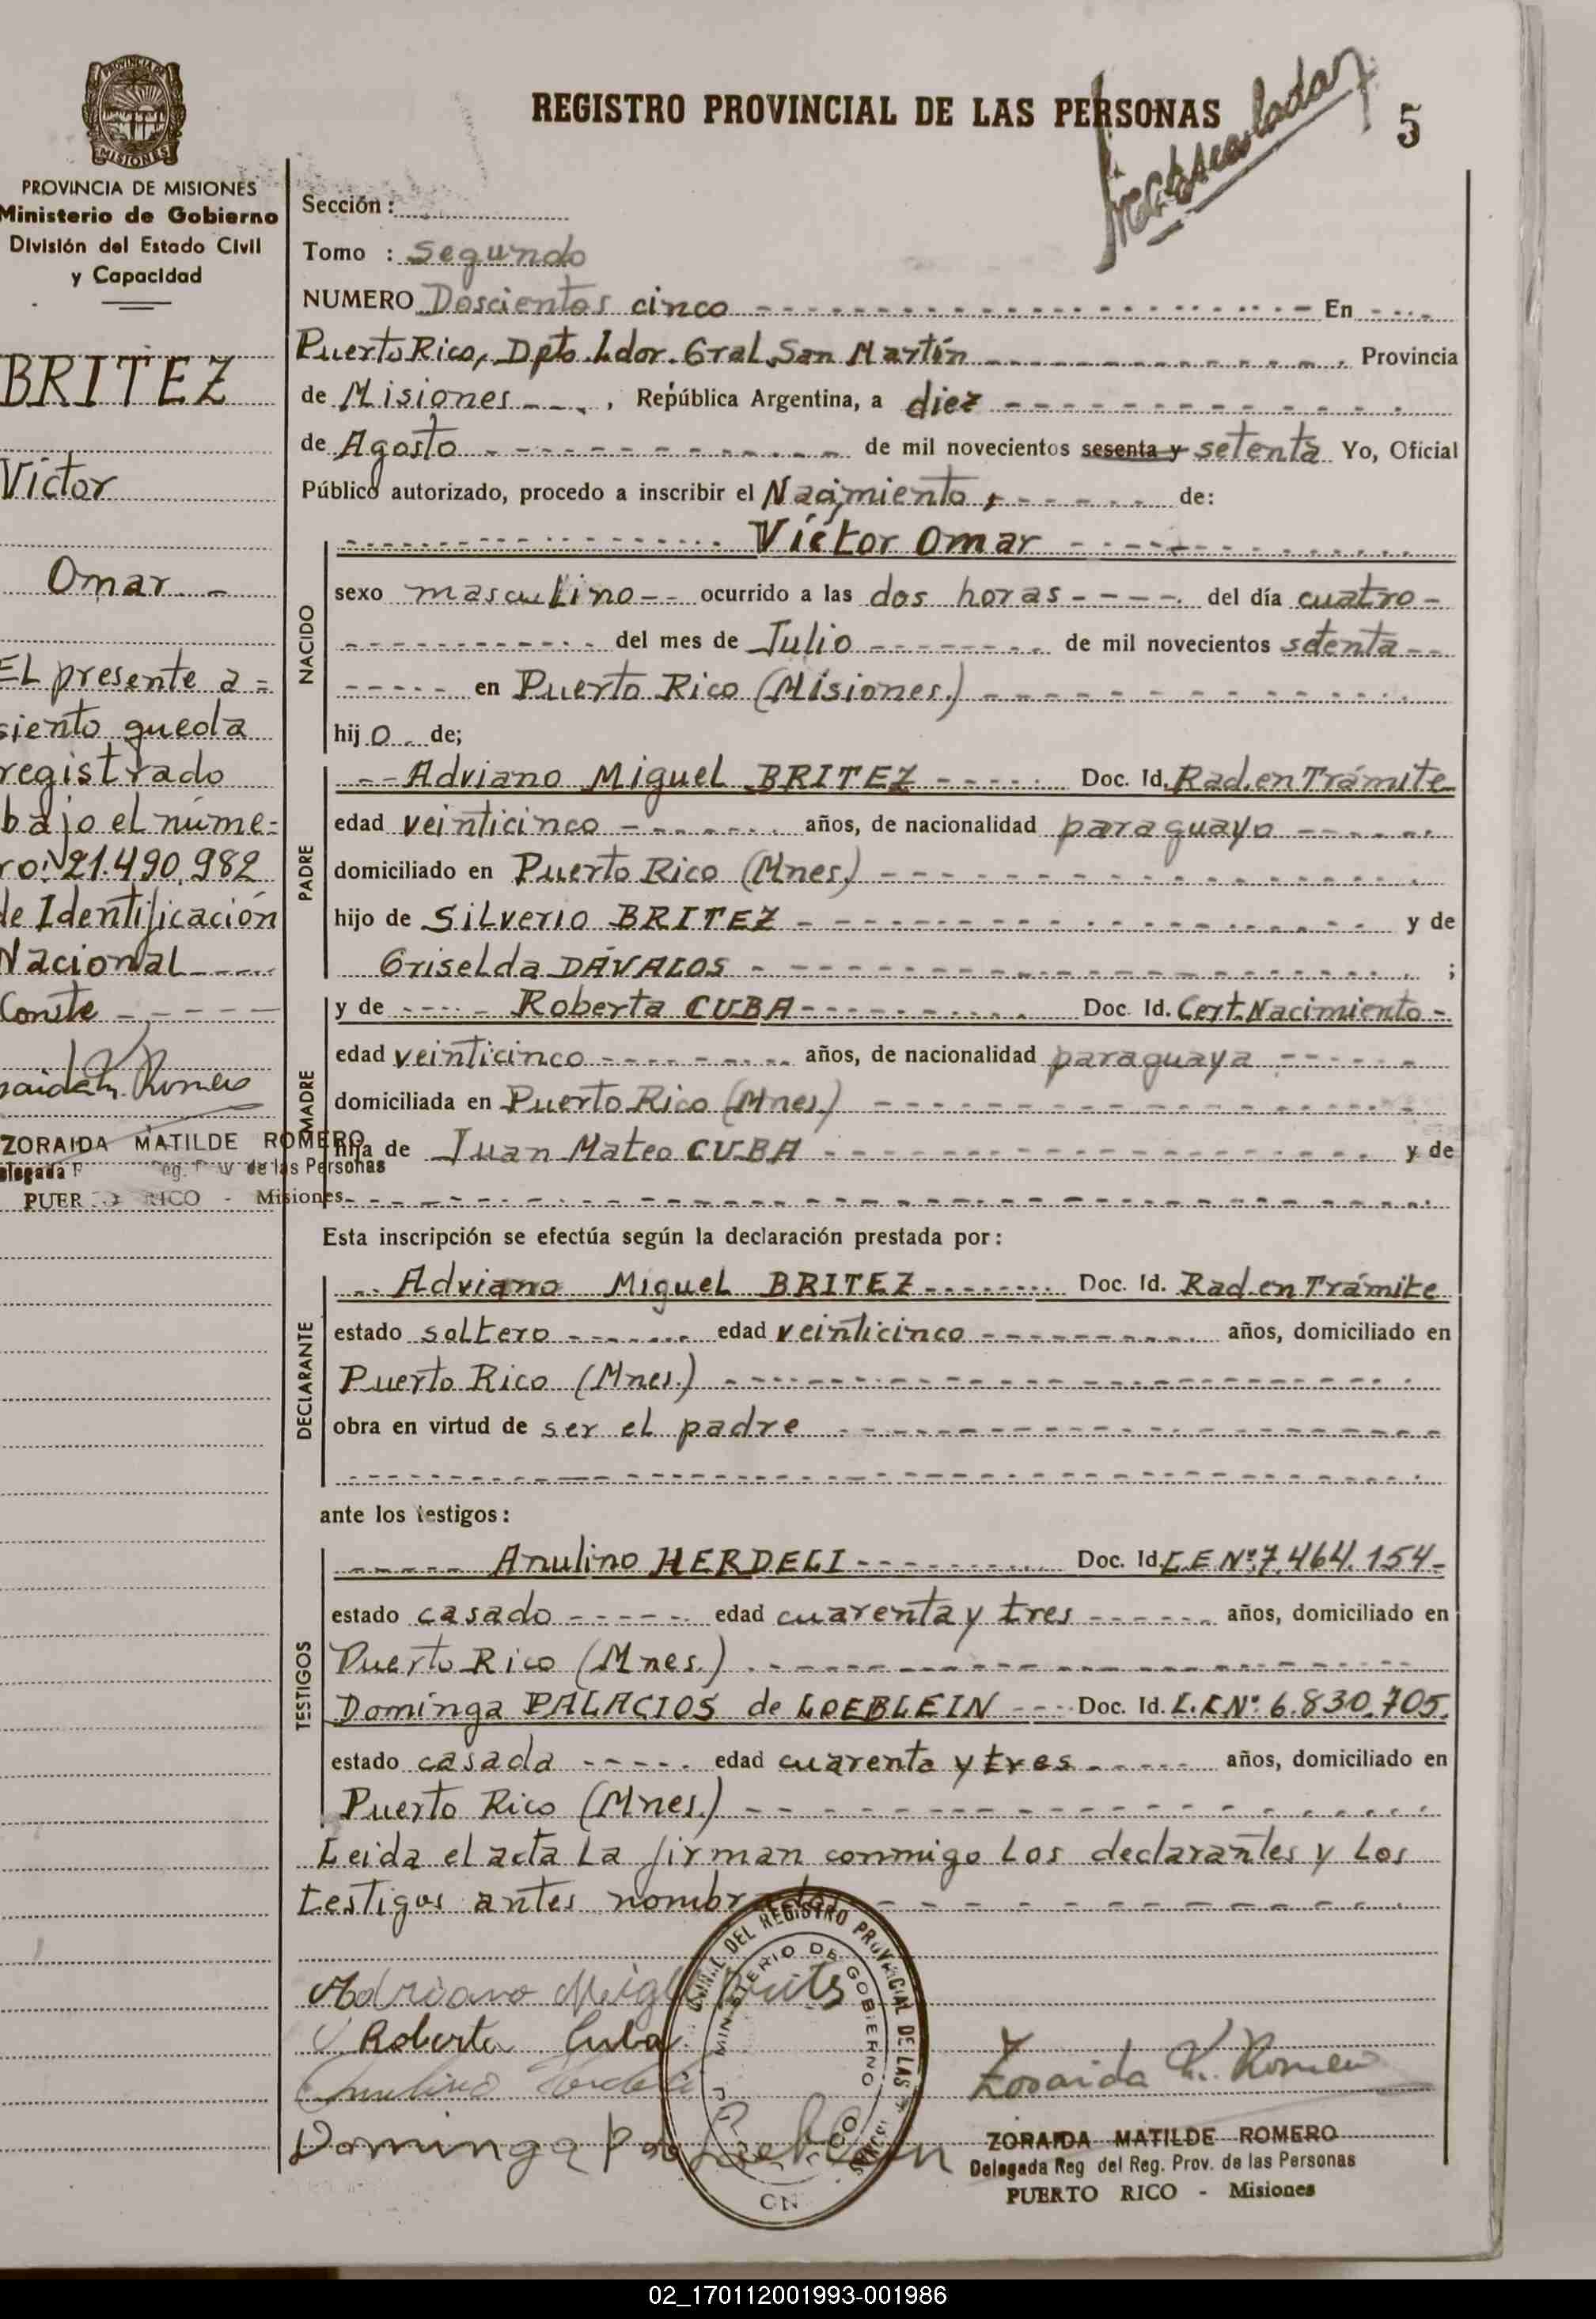 REGISTRO PROVINCIAL DE LAS PERSONAS
5
PROVINCIA DE MISIONES
MISIONES
PROVINCIA DE MISIONES
Ministerio de Gobierno
División del Estado Civil
y Capacidad
BRITEZ
Víctor
Omar.-
EL presente a=
siento queda
registrado
bajo el núme=
ro: 21.490.982
de Identificación
Nacional
Conste
ZORAIDA MATILDE ROMERO
de las Personas
PUER RICO - Misiones
Sección:
Tomo : Segundo
NUMERO Doscientos cinco En
Puerto Rico, Dpto Ldor. Gral. San Martín , Provincia
de Misiones , República Argentina, a diez
de Agosto de mil novecientos sesenta y setenta Yo, Oficial
Público autorizado, procedo a inscribir el Nacimiento, de:
Víctor Omar
NACIDO
sexo masculino ocurrido a las dos horas del día cuatro
del mes de Julio de mil novecientos setenta
en Puerto Rico (Misiones.)
hijo. de;
PADRE
Adriano Miguel BRITEZ Doc. Id. Rad. en Trámite
edad veinticinco años, de nacionalidad paraguayo
domiciliado en Puerto Rico (Mnes.)
hijo de Silverio BRITEZ y de
Griselda DÁVALOS ;
MADRE
y de Roberta CUBA Doc. Id. Cert. Nacimiento
edad veinticinco años, de nacionalidad paraguaya
domiciliada en Puerto Rico (Mnes.)
hija de Juan Mateo CUBA y de
Esta inscripción se efectúa según la declaración prestada por:
DECLARANTE
Adriano Miguel BRITEZ Doc. Id. Rad. en Trámite
estado soltero edad veinticinco años, domiciliado en
Puerto Rico (Mnes.)
obra en virtud de ser el padre
ante los testigos:
TESTIGOS
Anulino HERDELI Doc. Id. L.E. Nº: 7.464.154-
estado casado edad cuarenta y tres años, domiciliado en
Puerto Rico (Mnes.)
Dominga PALACIOS de LOEBLEIN Doc. Id. L.C Nº: 6.830.705.
estado casada edad cuarenta y tres años, domiciliado en
Puerto Rico (Mnes.)
Leida el acta la firman conmigo los declarantes y los
testigos antes nombrados
Adriano
Roberta Cuba
Anulino Herdeli
Dominga
DEL REGISTRO PROVINCIAL DE LAS
MINISTERIO DE GOBIERNO
Zoraida M. Romero
ZORAIDA MATILDE ROMERO
Delegada Reg del Reg. Prov. de las Personas
PUERTO RICO - Misiones
02_170112001993-001986